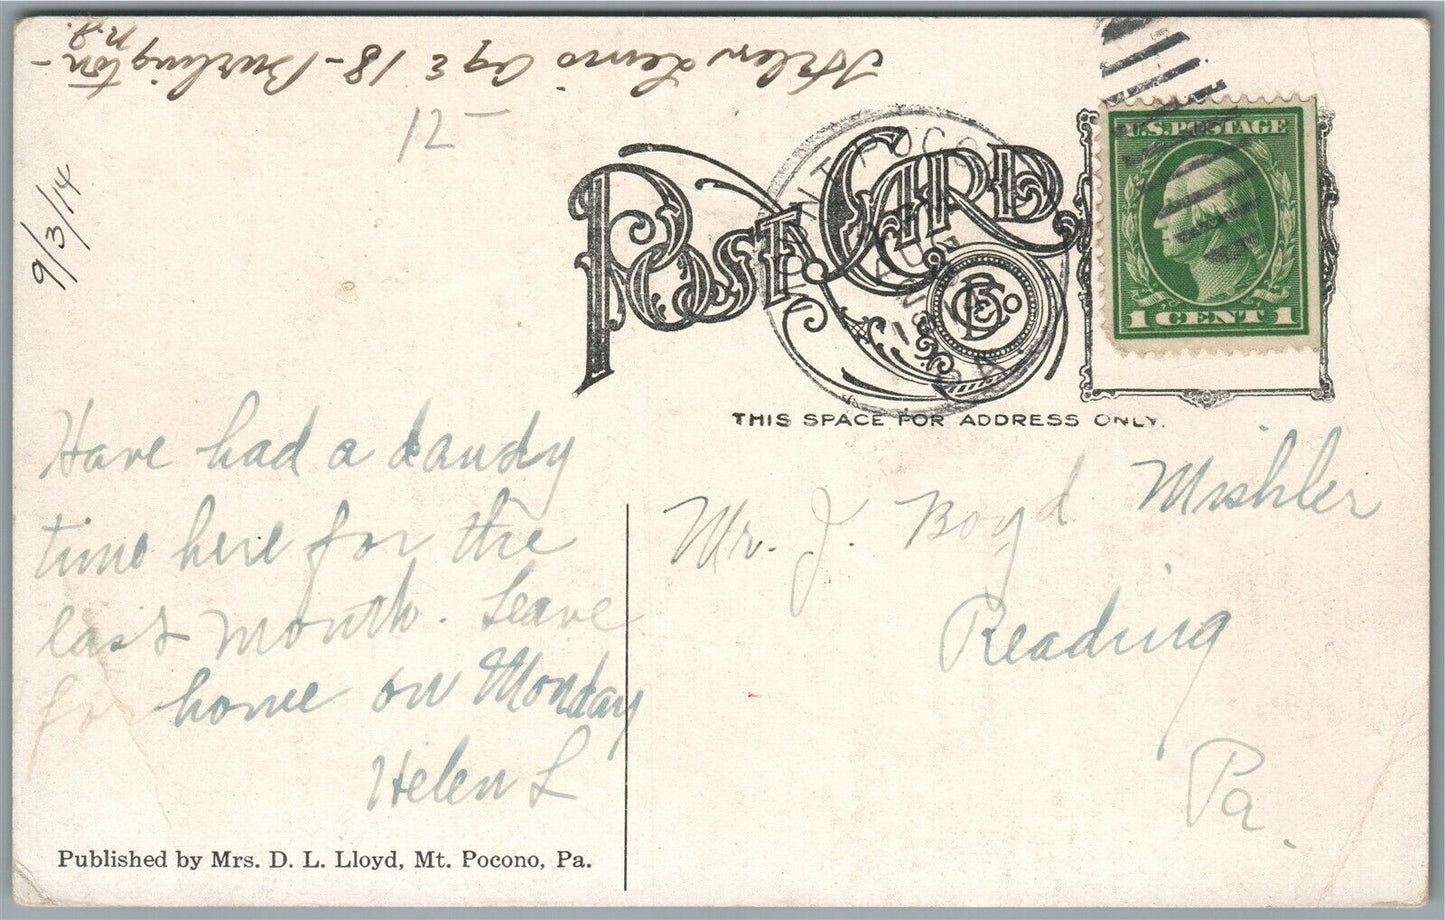 Helen Lewis Age 18 - Burlington -
N.J.
12 -
9/3/14
POST CARD
MOUNT POCONO
AUG
PA.
U.S. POSTAGE
1 CENT 1
THIS SPACE FOR ADDRESS ONLY.
Have had a dandy
time here for the
last month. Leave
for home on Monday
Helen L
Mr. J. Boyd Mishler
Reading
Pa.
Published by Mrs. D. L. Lloyd, Mt. Pocono, Pa.